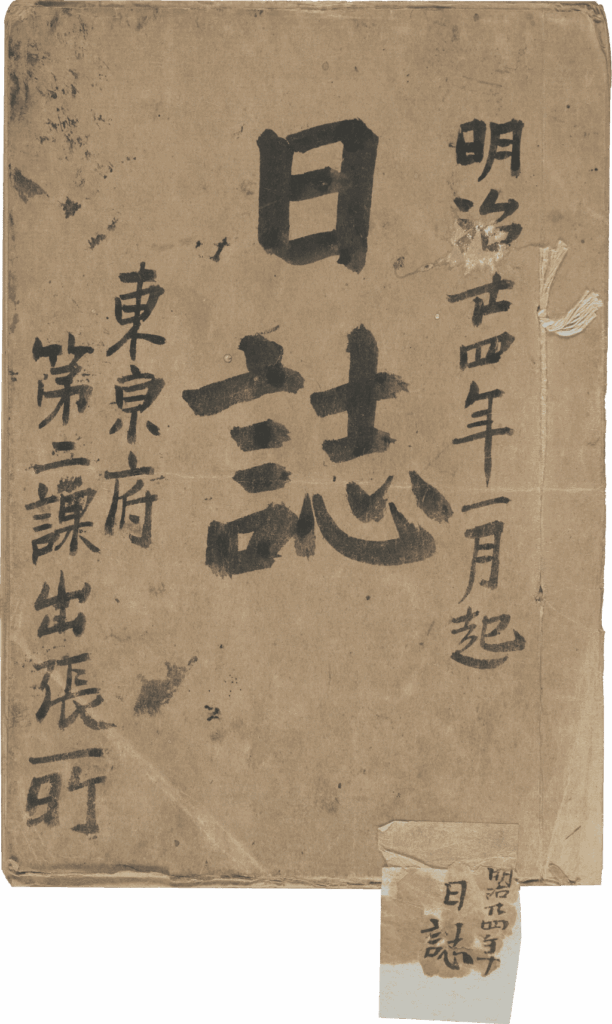 明治廿四年一月起
日誌
東京府
第二課出張所
明治廿四年
日誌